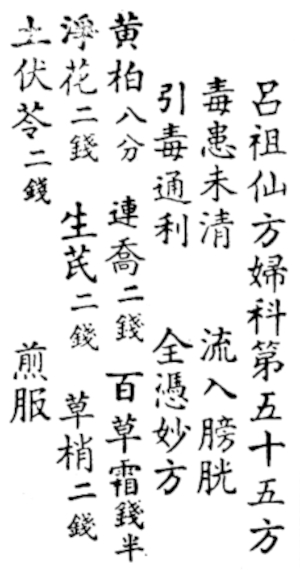 呂祖仙方婦科第五十五方
毒患未清　流入膀胱
引毒通利　全憑妙方
黄柏八分　連喬二錢　百草霜錢半
淨花二錢　生芪二錢　草梢二錢
土伏苓二錢　煎服